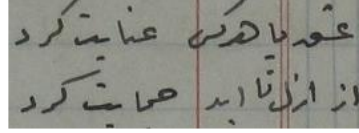 عشق با هرکس عنایت کرد
از ازل تا ابد حمایت کرد